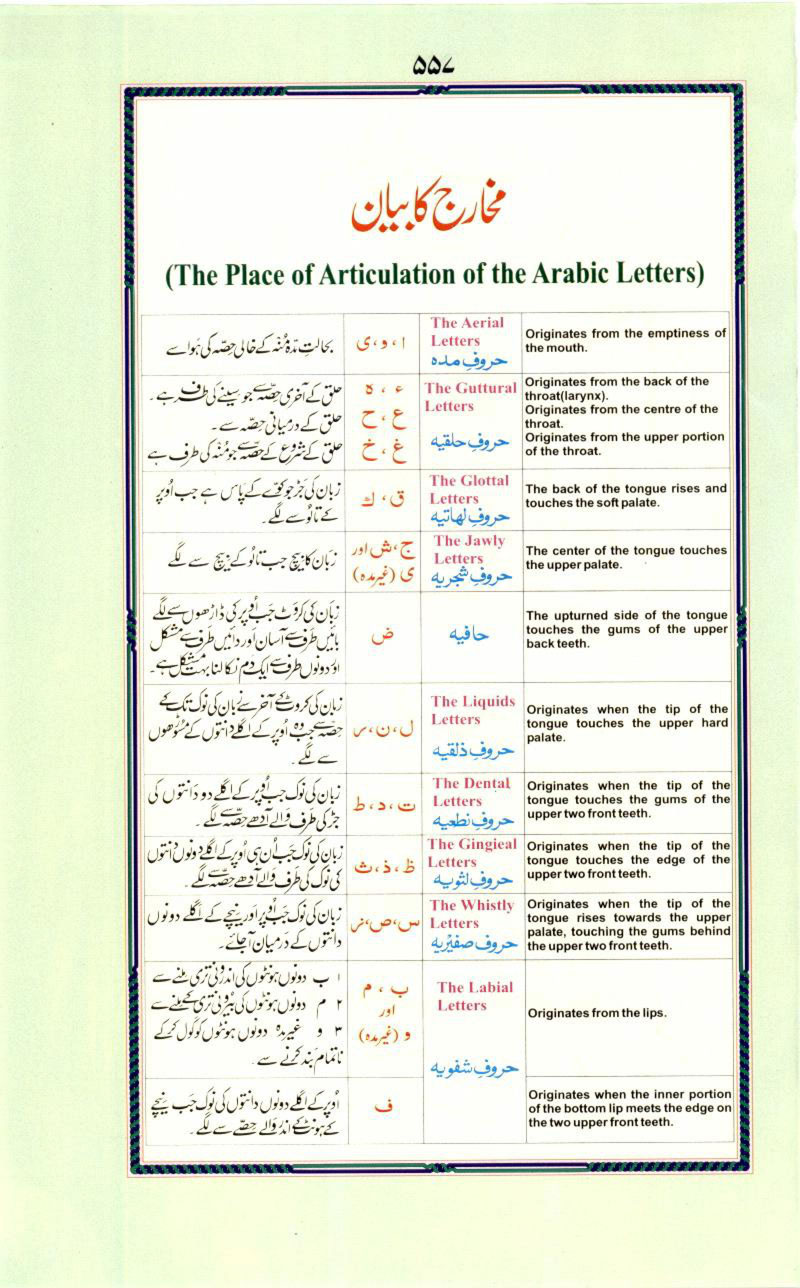 ۵۵۷
مخارج کا بیان
(The Place of Articulation of the Arabic Letters)
بحالتِ مدّہ مُنّہ کے خالی حِصّہ کی ہَوا سے
ا ، و ، ی
The Aerial
Letters
حروفِ مدہ
Originates from the emptiness of
the mouth.
حلق کے آخری حِصّہ سے جو سینے کی طرف ہے۔
حلق کے درمیانی حِصّہ سے۔
حلق کے شروع کے حصّہ سے جو مُنّہ کی طرف ہے
ء ، ہ
ع ، ح
غ ، خ
The Guttural
Letters
حروفِ حلقیہ
Originates from the back of the
throat(larynx).
Originates from the centre of the
throat.
Originates from the upper portion
of the throat.
زبان کی جَڑ جو کوّے کے پاس ہے جب اُوپر
کے تالُو سے لگے۔
ق ، ك
The Glottal
Letters
حروفِ لهاتیه
The back of the tongue rises and
touches the soft palate.
زَبان کا بیچ جب تالُو کے بیچ سے لگے
ج ، ش اور
ی (غیرمدہ)
The Jawly
Letters
حروفِ شجریه
The center of the tongue touches
the upper palate.
زبان کی کروٹ جب اُوپر کی ڈاڑھوں سے لگے
بائیں طرف سے آسان اور دائیں طرف سے مشکل
اور دونوں طرف سے ایک دم نکالنا بہت مشکل ہے۔
ض
حافیه
The upturned side of the tongue
touches the gums of the upper
back teeth.
زبان کی کروٹ کے آخر سے زبان کی نوک تک کے
حِصّہ سے جب وہ اُوپر کے اگلے دانتوں کے مسُوڑھوں
سے لگے۔
ل ، ن ، ر
The Liquids
Letters
حروفِ ذلقیه
Originates when the tip of the
tongue touches the upper hard
palate.
زبان کی نوک جب اُوپر کے اگلے دو دانتوں کی
جڑ کی طرف والے آدھے حِصّہ سے لگے۔
ت ، د ، ط
The Dental
Letters
حروفِ نطعیه
Originates when the tip of the
tongue touches the gums of the
upper two front teeth.
زبان کی نوک جب اُن ہی اُوپر کے اگلے دونوں دانتوں
کی نوک کی طرف والے آدھے حِصّہ سے لگے۔
ظ ، ذ ، ث
The Gingieal
Letters
حروفِ لثویه
Originates when the tip of the
tongue touches the edge of the
upper two front teeth.
زبان کی نوک جب اُوپر اور نیچے کے اگلے دونوں
دانتوں کے درمیان آجائے۔
س ، ص ، ز
The Whistly
Letters
حروفِ صفیریه
Originates when the tip of the
tongue rises towards the upper
palate, touching the gums behind
the upper two front teeth.
۱ ب دونوں ہونٹوں کی اندرُونی تری ملنے سے
۲ م دونوں ہونٹوں کی بیرُونی تری کے ملنے سے
۳ و غیرمدہ دونوں ہونٹوں کو گول کرکے
ناتمام بند کرنے سے۔
ب ، م
اور
و (غیرمدہ)
The Labial
Letters
حروفِ شفویه
Originates from the lips.
اُوپر کے اگلے دونوں دانتوں کی نوک جب نیچے
کے ہونٹ کے اندر والے حصّے سے لگے۔
ف
Originates when the inner portion
of the bottom lip meets the edge on
the two upper front teeth.